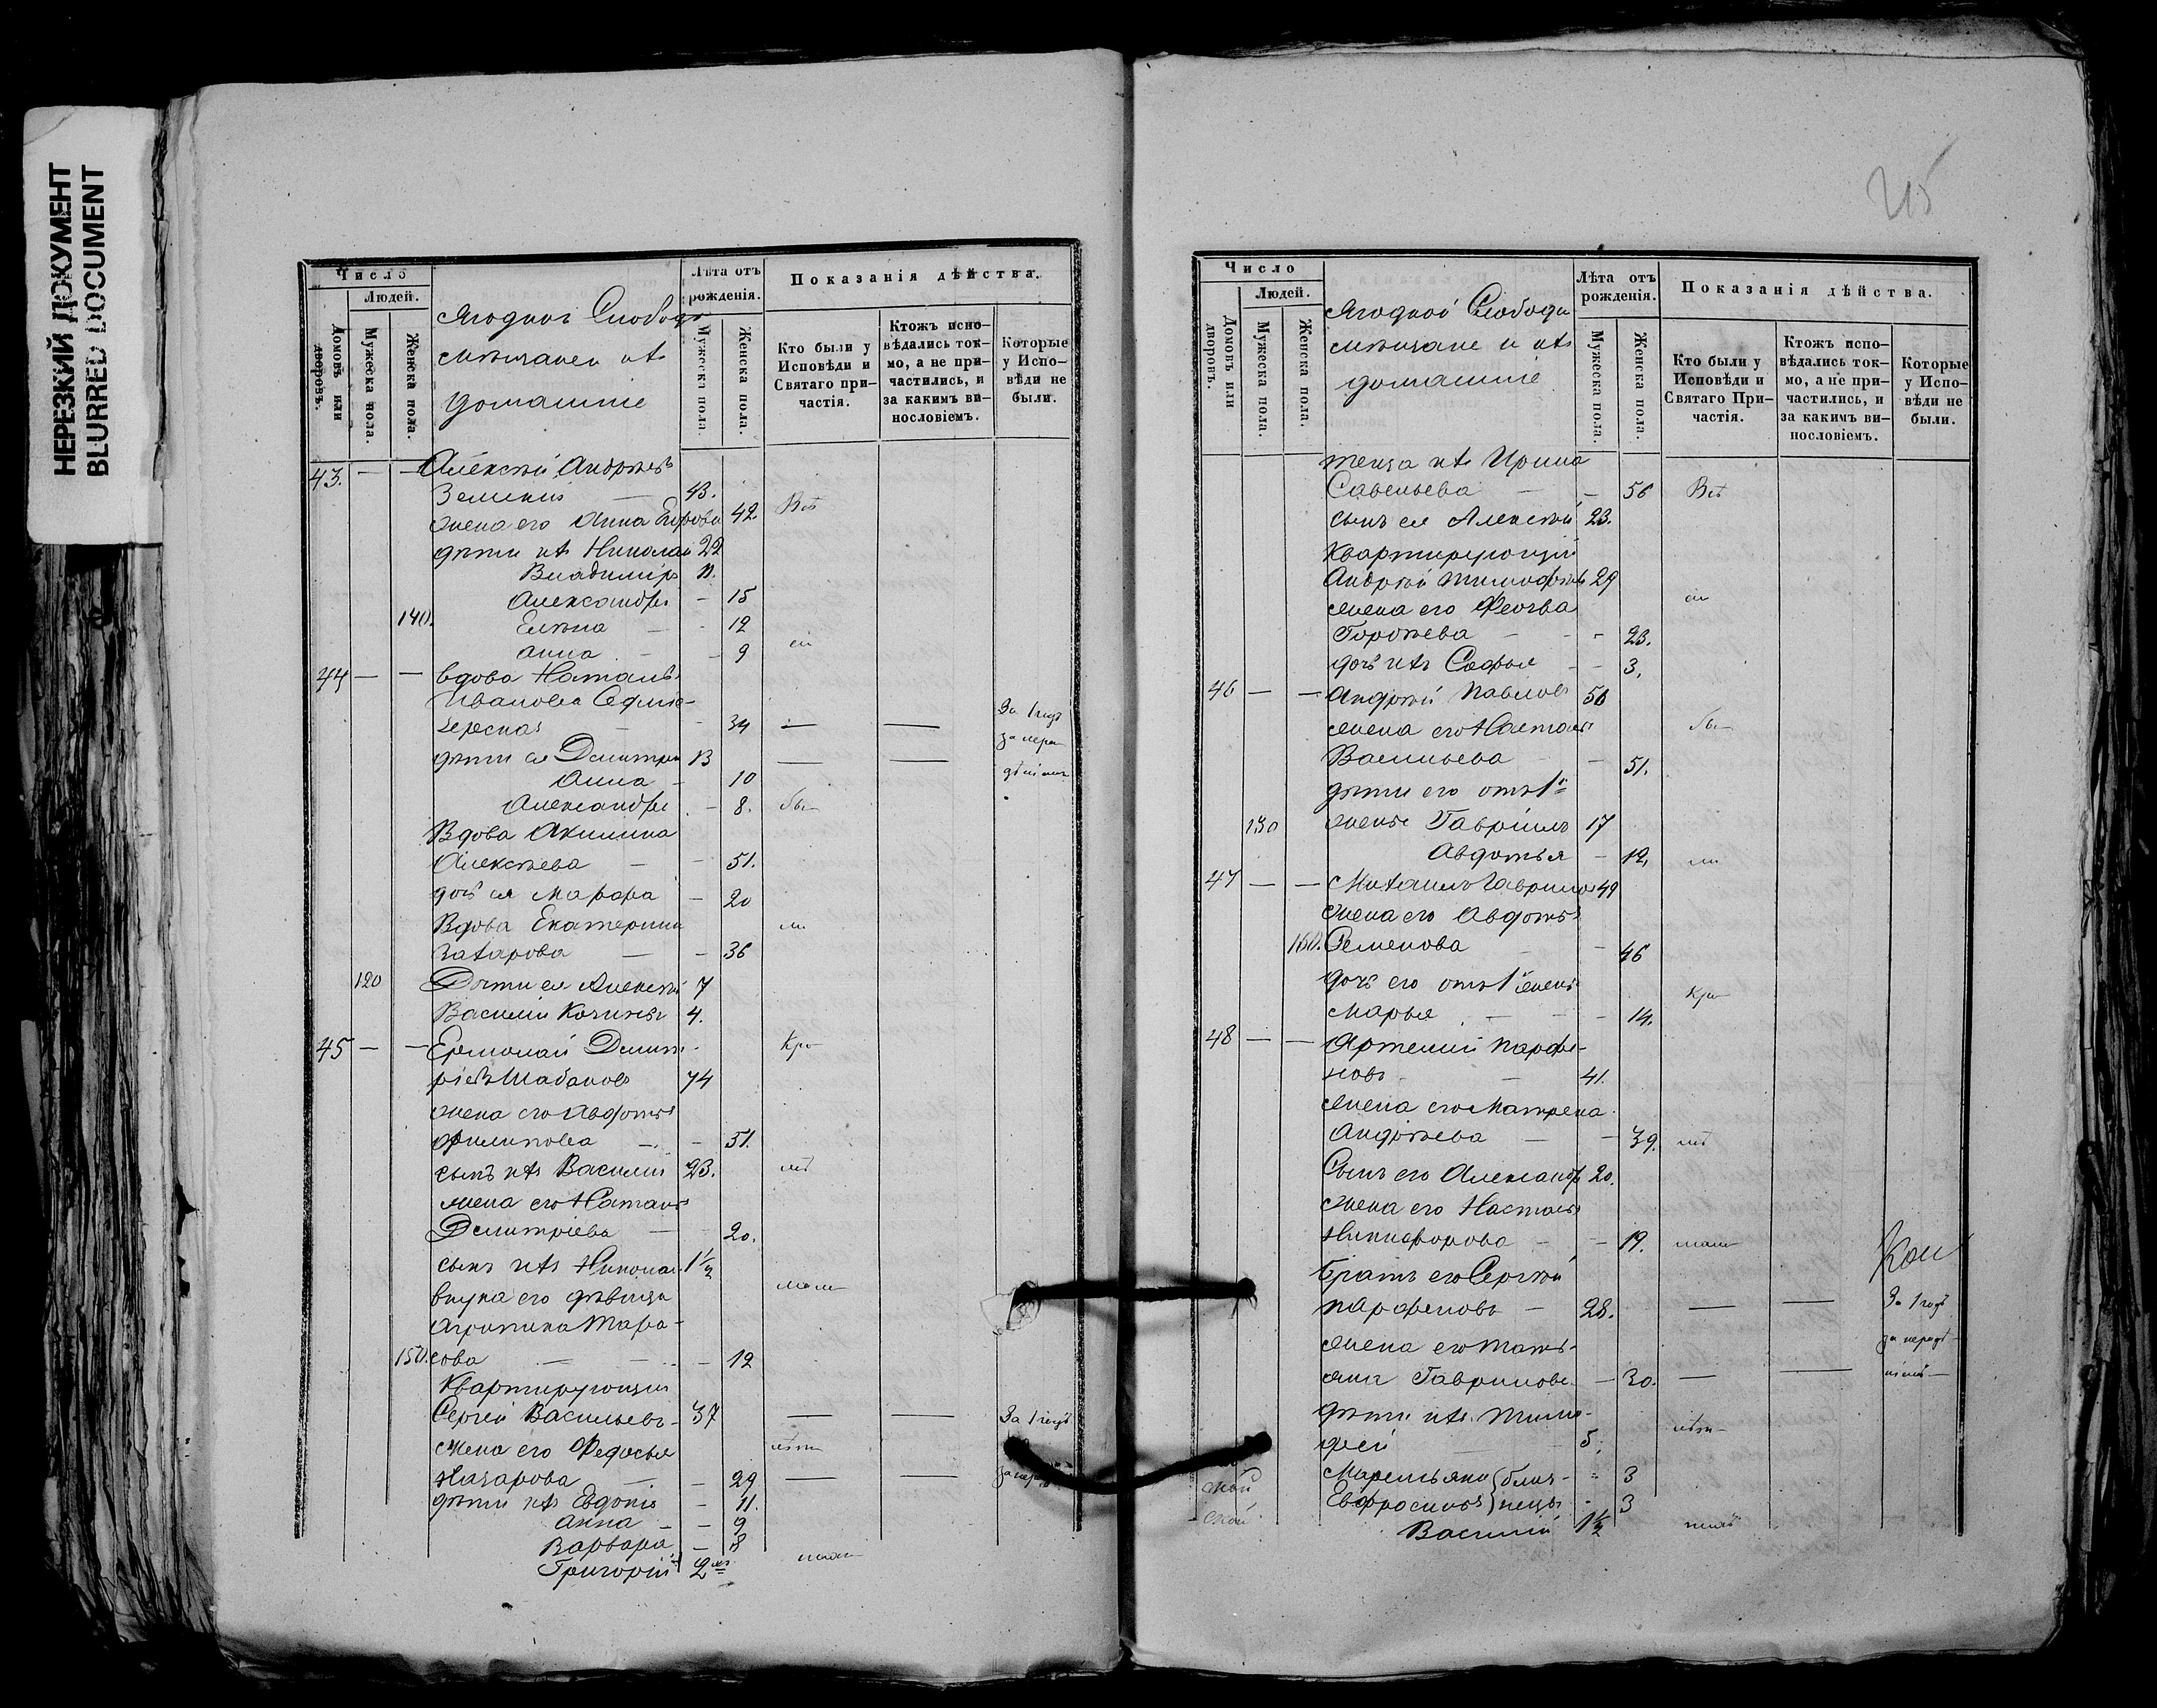 НЕРЕЗКИЙ ДОКУМЕНТ
BLURRED DOCUMENT
Число
Людей.
Домовъ или дворовъ.
Мужеска пола.
Женска пола.
Ягодной Слободы
мѣщане и ихъ
домашніе
Лѣта отъ
рожденія.
Мужеска пола.
Женска пола.
Показанія дѣйства.
Кто были у
Исповѣди и
Святаго при-
частія.
Ктожъ испо-
вѣдались ток-
мо, а не при-
частились, и
за какимъ ви-
нословіемъ.
Которые
у Испо-
вѣди не
были.
43. — — Алексѣй Андреевъ
— 43.
жена его Анна Егорова 42 Всѣ
дѣти ихъ Николай 22
Владиміръ 11.
Александра — 15
140. Елена — - 12
Анна — - 9
44 — — вдова Наталья
Иванова
— - 34 — — За 1 годъ
дѣти ея Дмитрій 13 — —
Анна — 10
Александра - 8. бы-
Вдова Акилина
Алексѣева — - 51.
дочь ея Марѳа - 20
Вдова Екатерина ли
Захарова — - 36
120 Дѣти ея Алексѣй 7
Василій 4.
45 — — Ермолай Дмит- Кро-
ріевъ Шабановъ 74
жена его Авдотья
Филипова — - 51.
сынъ ихъ Василій 23. мѣ
жена его Наталья
Дмитріева — 20.
сынъ ихъ Николай 1½
внука его дѣвица мало-
Агрипина Тара-
150. сова — — - 12
Квартирующій
Сергѣй Васильевъ - 37 — — За 1 годъ
жена его Федосья лѣтн
Назарова — - 29 — —
дѣти ихъ Евдокія - 11.
Анна — - 9
Варвара - 8
Григорій 2 мѣ
215
Число
Людей.
Домовъ или дворовъ.
Мужеска пола.
Женска пола.
Ягодной Слободы
мѣщане и ихъ
домашніе
Лѣта отъ
рожденія.
Мужеска пола.
Женска пола.
Показанія дѣйства.
Кто были у
Исповѣди и
Святаго При-
частія.
Ктожъ испо-
вѣдались ток-
мо, а не при-
частились, и
за какимъ ви-
нословіемъ.
Которые
у Испо-
вѣди не
были.
теща ихъ Ирина
Савельева — - 56 Всѣ
сынъ ея Алексѣй 23.
Квартирующій
Андрей Тимофѣевъ 29
жена его
— - - 23.
дочь ихъ Софья - - 3.
46 — — Андрей Павловъ 56
жена его Наталья бы-
Васильева - 51.
дѣти его отъ 1й
130 жены Гавріилъ 17
Авдотья - 12. ли
47 — — Михаилъ Гавриловъ 49
жена его Авдотья
160. Семенова — - 46
дочь его отъ 1й жены
Марья — - - 14. Кро-
48 — — Артемій Парфе-
новъ — 41.
жена его Матрена
Андреева — - 39. мѣ
Сынъ его Александръ 20.
жена его Настасья
Никифорова - - 19. мало-
братъ его Сергѣй
Парфеновъ — 28. — — За 1 годъ
жена его Тать-
яна Гаврилова - 30. — —
дѣти ихъ Тимо- лѣтн-
фей — 5.
Маремьяна близ- - 3
Евфросинья нецы - 3
Василій 1½